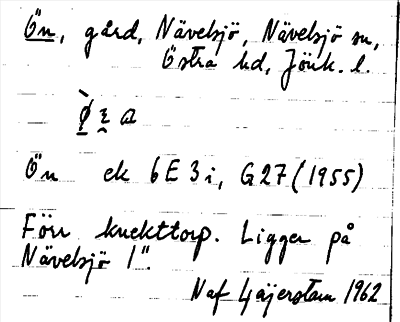 Ön, gård, Nävelsjö, Nävelsjö sn,
Östra hd, Jönk. l.
Ön ek 6E 3i, G27 (1955)
Förr knekttorp. Ligger på
Nävelsjö 1".
Naf Hjertstam 1962